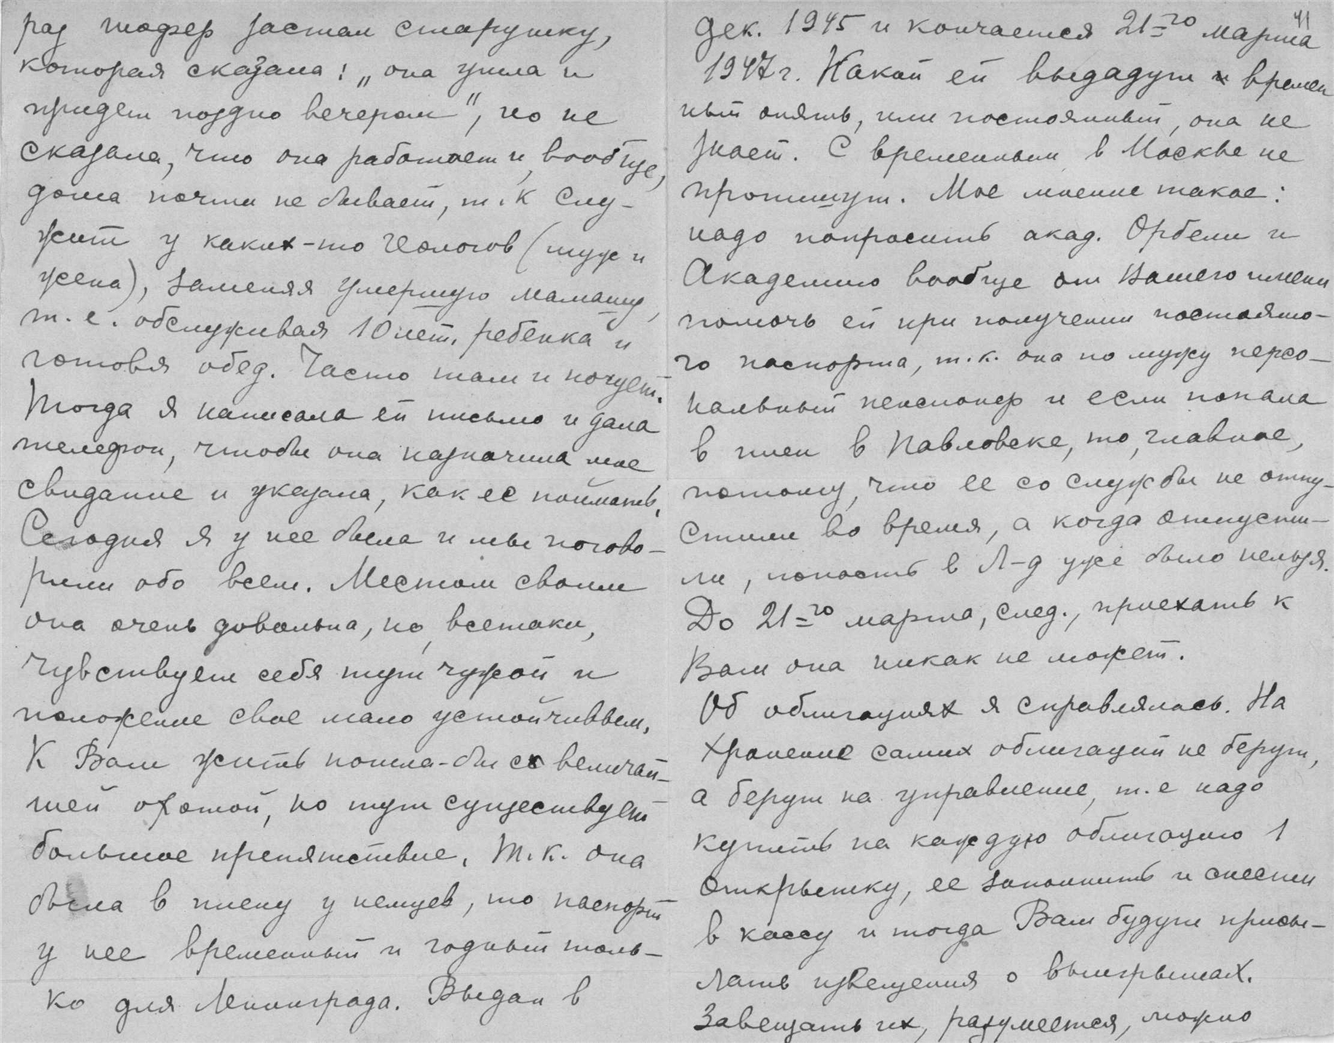 раз шофер застал старушку,
которая сказала: „она ушла и
придет поздно вечером", но не
сказала, что она работает и, вообще,
дома почти не бывает, т.к слу-
жит у каких-то геологов (муж и
жена), заменяя умершую мамашу,
т.е. обслуживая 10 лет. ребенка и
готовя обед. Часто там и ночует.
Тогда я написала ей письмо и дала
телефон, чтобы она назначила мне
свидание и указала, как ее поймать.
Сегодня я у нее была и мы погово-
рили обо всем. Местом своим
она очень довольна, но, всетаки,
чувствует себя тут чужой и
положение свое мало устойчивым.
К Вам жить пошла-бы с величай-
шей охотой, но тут существует
большое препятствие. Т.к. она
была в плену у немцев, то паспорт
у нее временный и годный толь-
ко для Ленинграда. Выдан в
41
дек. 1945 и кончается 21-го марта
1947 г. Какой ей выдадут времен
ный опять, или постоянный, она не
знает. С временным в Москве не
пропишут. Мое мнение такое:
надо попросить акад. Орбели и
Академию вообще от Вашего имени
помочь ей при получении постоянно-
го паспорта, т.к. она по мужу персо-
нальный пенсионер и если попала
в плен в Павловске, то, главное,
потому, что ее со службы не отпу-
стили во время, а когда отпусти-
ли, попасть в Л-д уже было нельзя.
До 21-го марта, след., приехать к
Вам она никак не может.
Об облигациях я справлялась. На
хранение самих облигаций не берут,
а берут на управление, т.е надо
купить на каждую облигацию 1
открытку, ее заполнить и снести
в кассу и тогда Вам будут присы-
лать извещения о выигрышах.
Завещать их, разумеется, можно